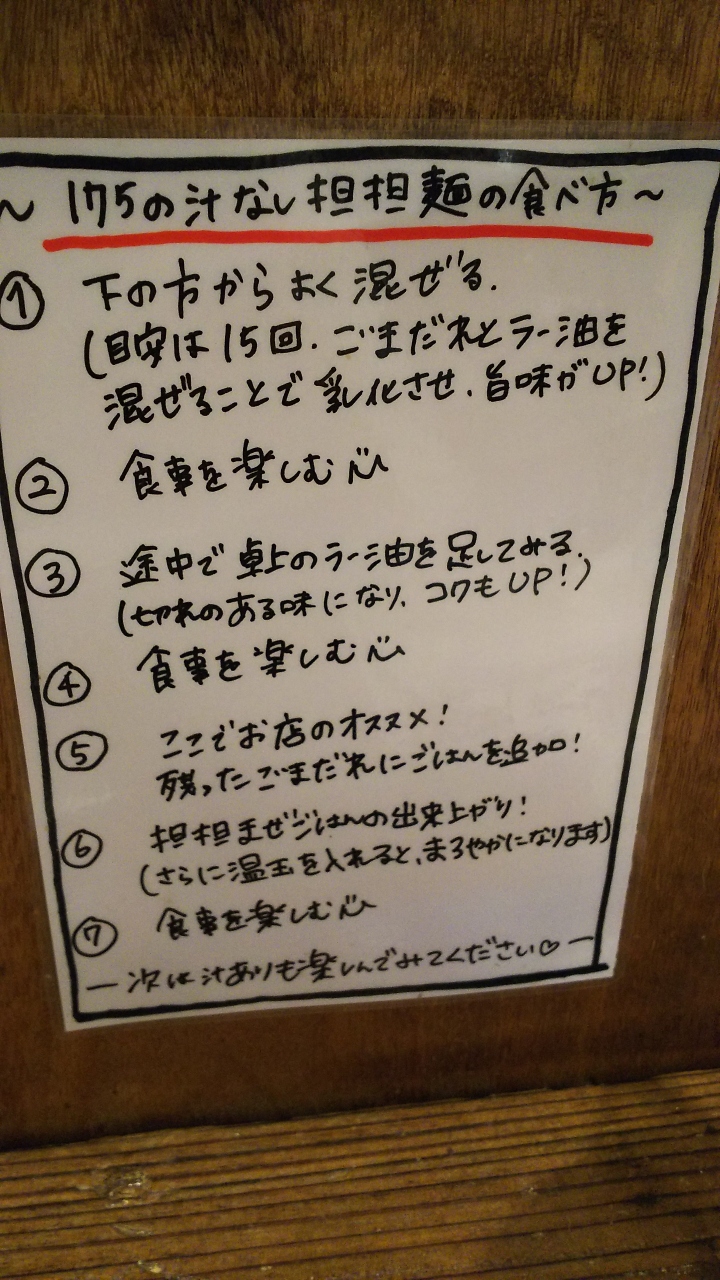 ～175の汁なし担担麺の食べ方～
① 下の方からよく混ぜる.
(目安は15回.ごまだれとラー油を
混ぜることで乳化させ、旨味がUP!)
② 食事を楽しむ
③ 途中で卓上のラー油を足してみる.
(切れのある味になり、コクもUP!)
④ 食事を楽しむ
⑤ ここでお店のオススメ!
残ったごまだれにごはんを追加!
⑥ 担担まぜごはんの出来上がり!
(さらに温玉を入れると、まろやかになります)
⑦ 食事を楽しむ
ー次は汁ありも楽しんでみてください♡ー